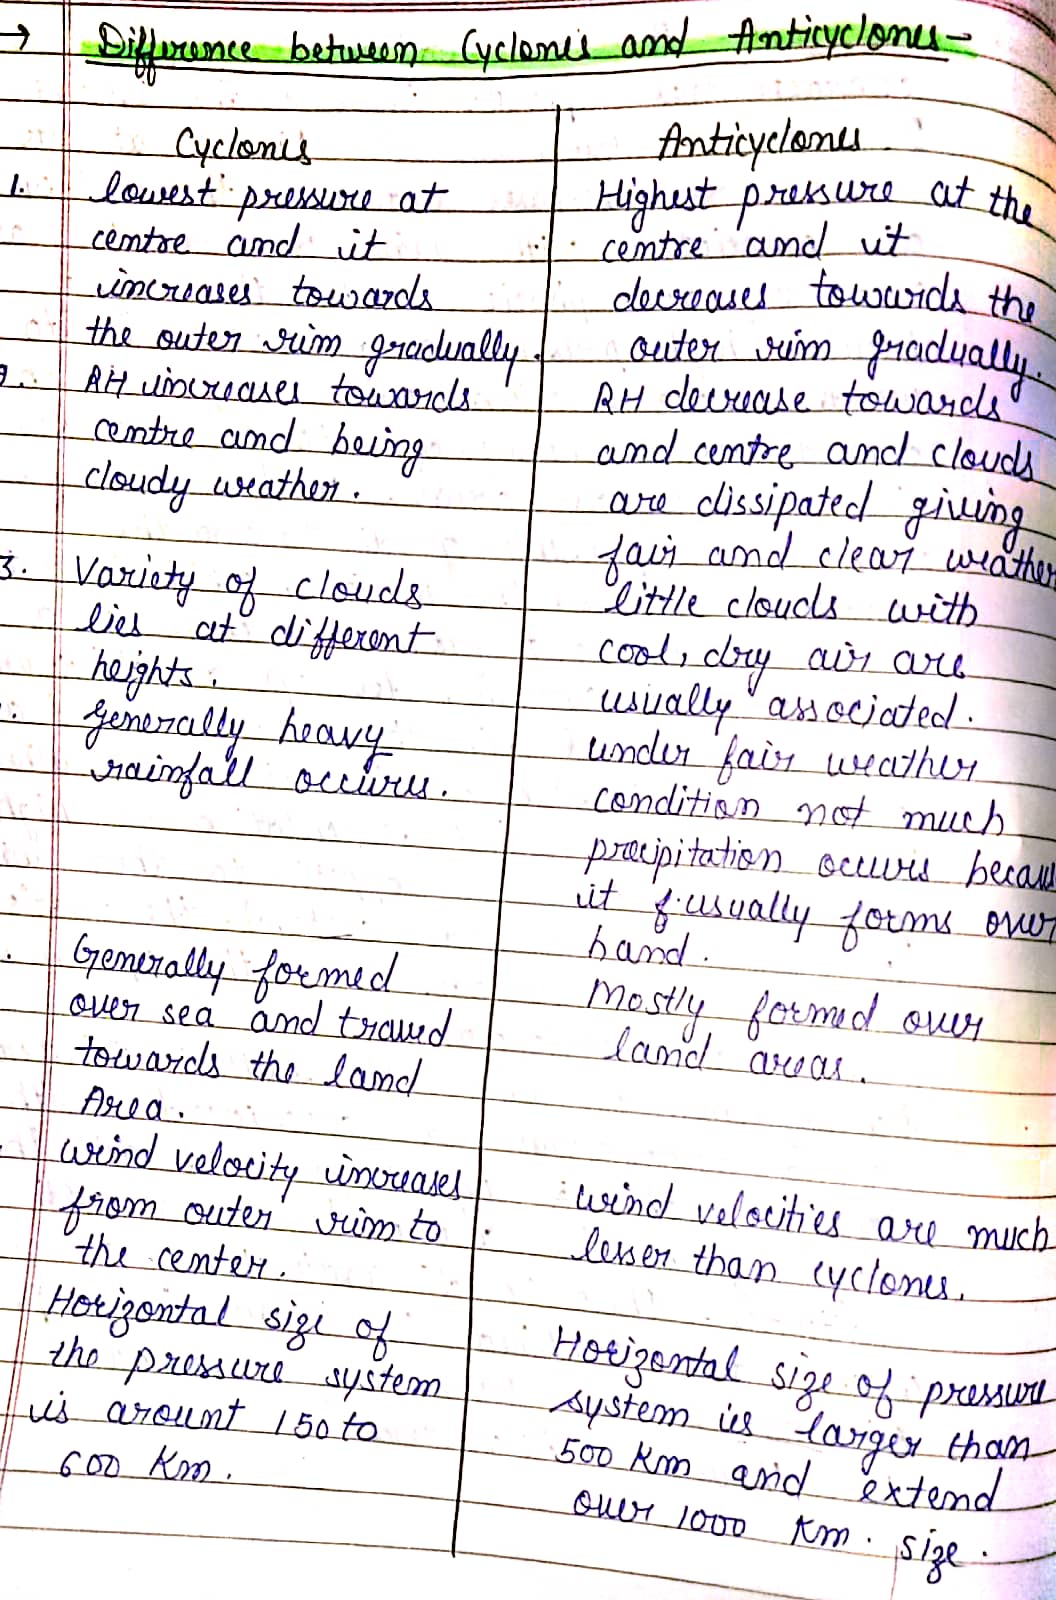 → Difference between Cyclones and Anticyclones-
Cyclones
1. lowest pressure at
centre and it
increases towards
the outer rim gradually.
2. RH increases towards
centre and being
cloudy weather.
3. Variety of clouds
lies at different
heights.
generally heavy
rainfall occurs.
Generally formed
over sea and traved
towards the land
Area.
wind velocity increases
from outer rim to
the center.
Horizontal size of
the pressure system
is arount 150 to
600 Km.
Anticyclones
Highest pressure at the
centre and it
decreases towards the
outer rim gradually.
RH decrease towards
and centre and clouds
are dissipated giving
fair and clear weather
little clouds with
cool, dry air are
usually associated.
under fair weather
condition not much
precipitation occurs becaus
it usually forms over
hand.
Mostly formed over
land areas.
wind velocities are much
lesser than cyclones.
Horizontal size of pressure
system is larger than
500 Km and extend
over 1000 Km. size.